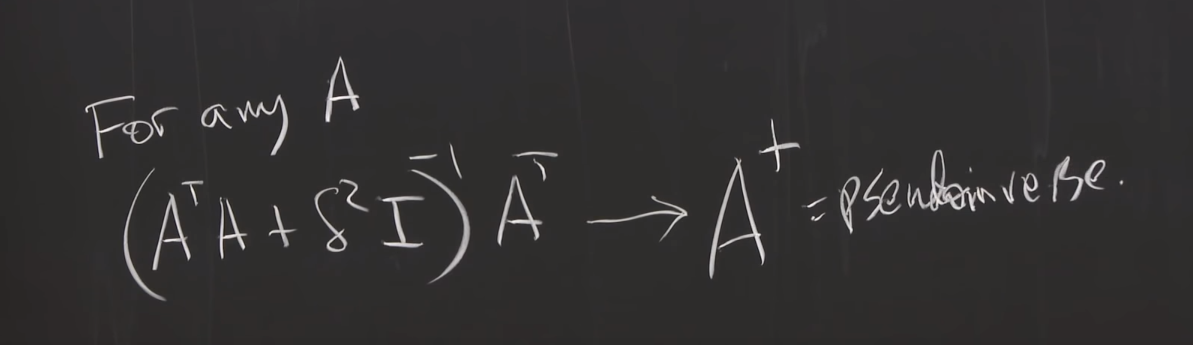 For any A
(AᵀA + δ²I)⁻¹ Aᵀ → A⁺ = pseudoinverse.